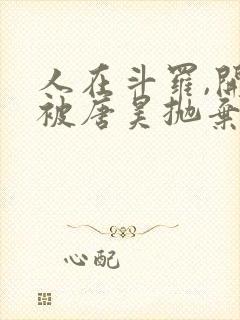 人在斗罗,開
被唐昊抛棄
心配